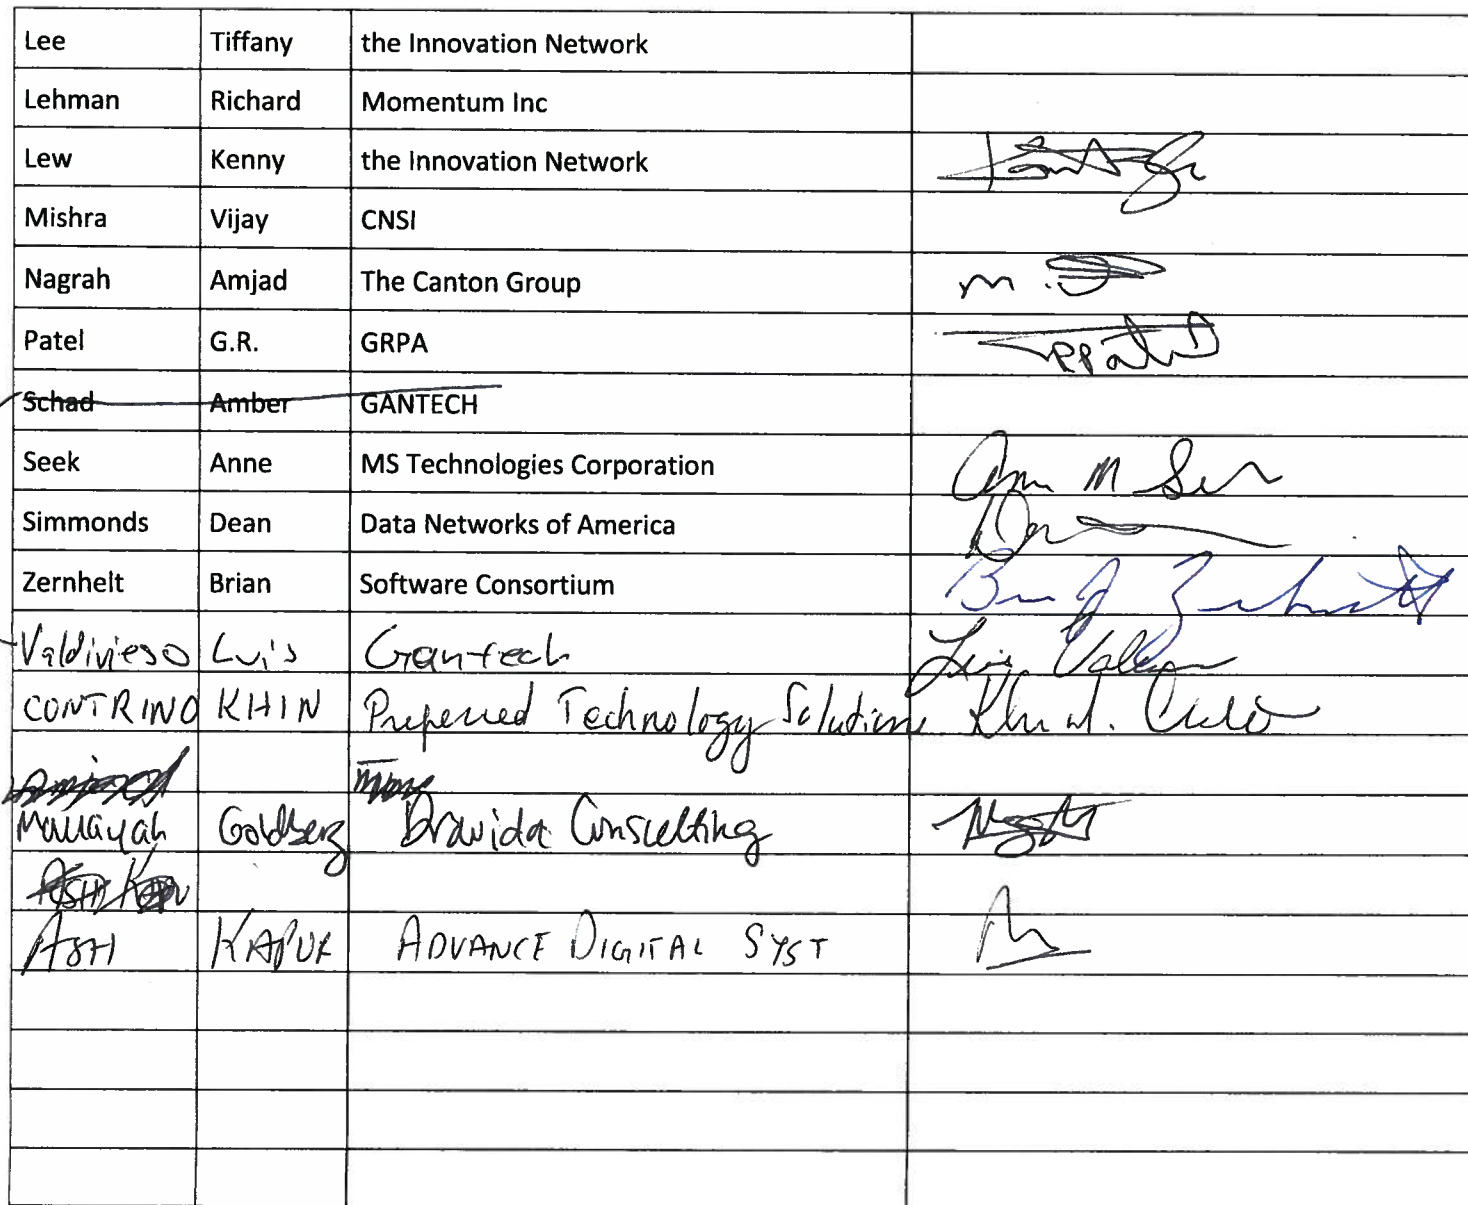 Lee Tiffany the Innovation Network
Lehman Richard Momentum Inc
Lew Kenny the Innovation Network
Mishra Vijay CNSI
Nagrah Amjad The Canton Group
Patel G.R. GRPA
Schad Amber GANTECH
Seek Anne MS Technologies Corporation
Simmonds Dean Data Networks of America
Zernhelt Brian Software Consortium
Valdivieso Luis Gantech
CONTRINO KHIN Preferred Technology Solutions
Goldberg Dravida Consulting
ASH KAPUR ADVANCE DIGITAL SYST